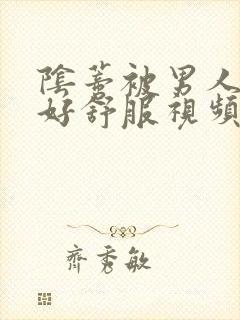 陰蒂被男人
好舒服視頻
齊秀敏